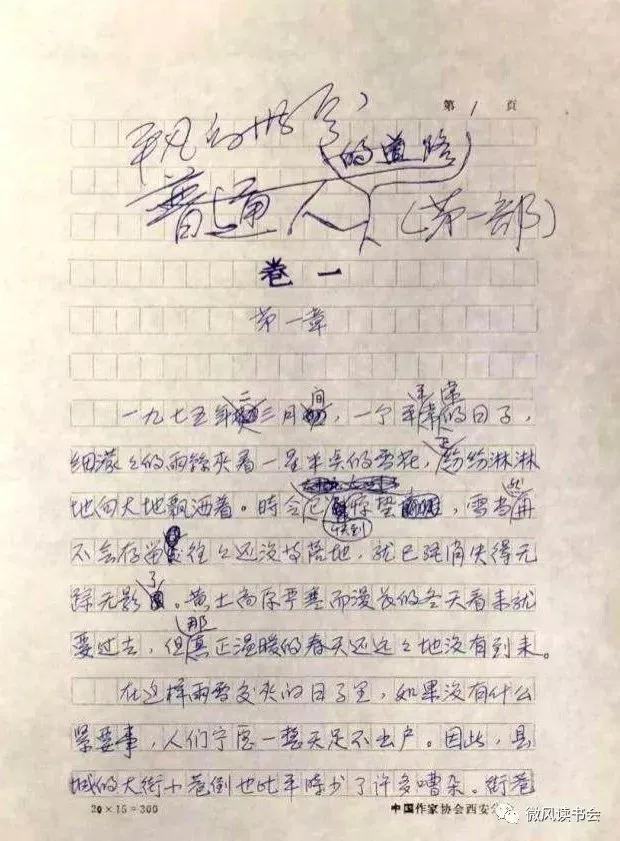 第1页
平凡的世界
(的道路)
普通人(第一部)
卷一
第一章
一九七五年二三月间，一个平常的日子，
细濛々的雨丝夹着一星半点的雪花，正纷纷淋淋
地向大地飘洒着。時令已快到惊蛰，雪当然再
不会存留，往々还没等落地，就已经消失得无
踪无影了。黄土高原严寒而漫长的冬天看来就
要过去，但那真正温暖的春天还远々地没有到来。
在这样雨雪交夹的日子里，如果没有什么
紧要事，人们宁愿一整天足不出户。因此，县
城的大街小巷倒也比平時少了许多嘈杂。街巷
20×15=300
中国作家协会西安分
微风读书会